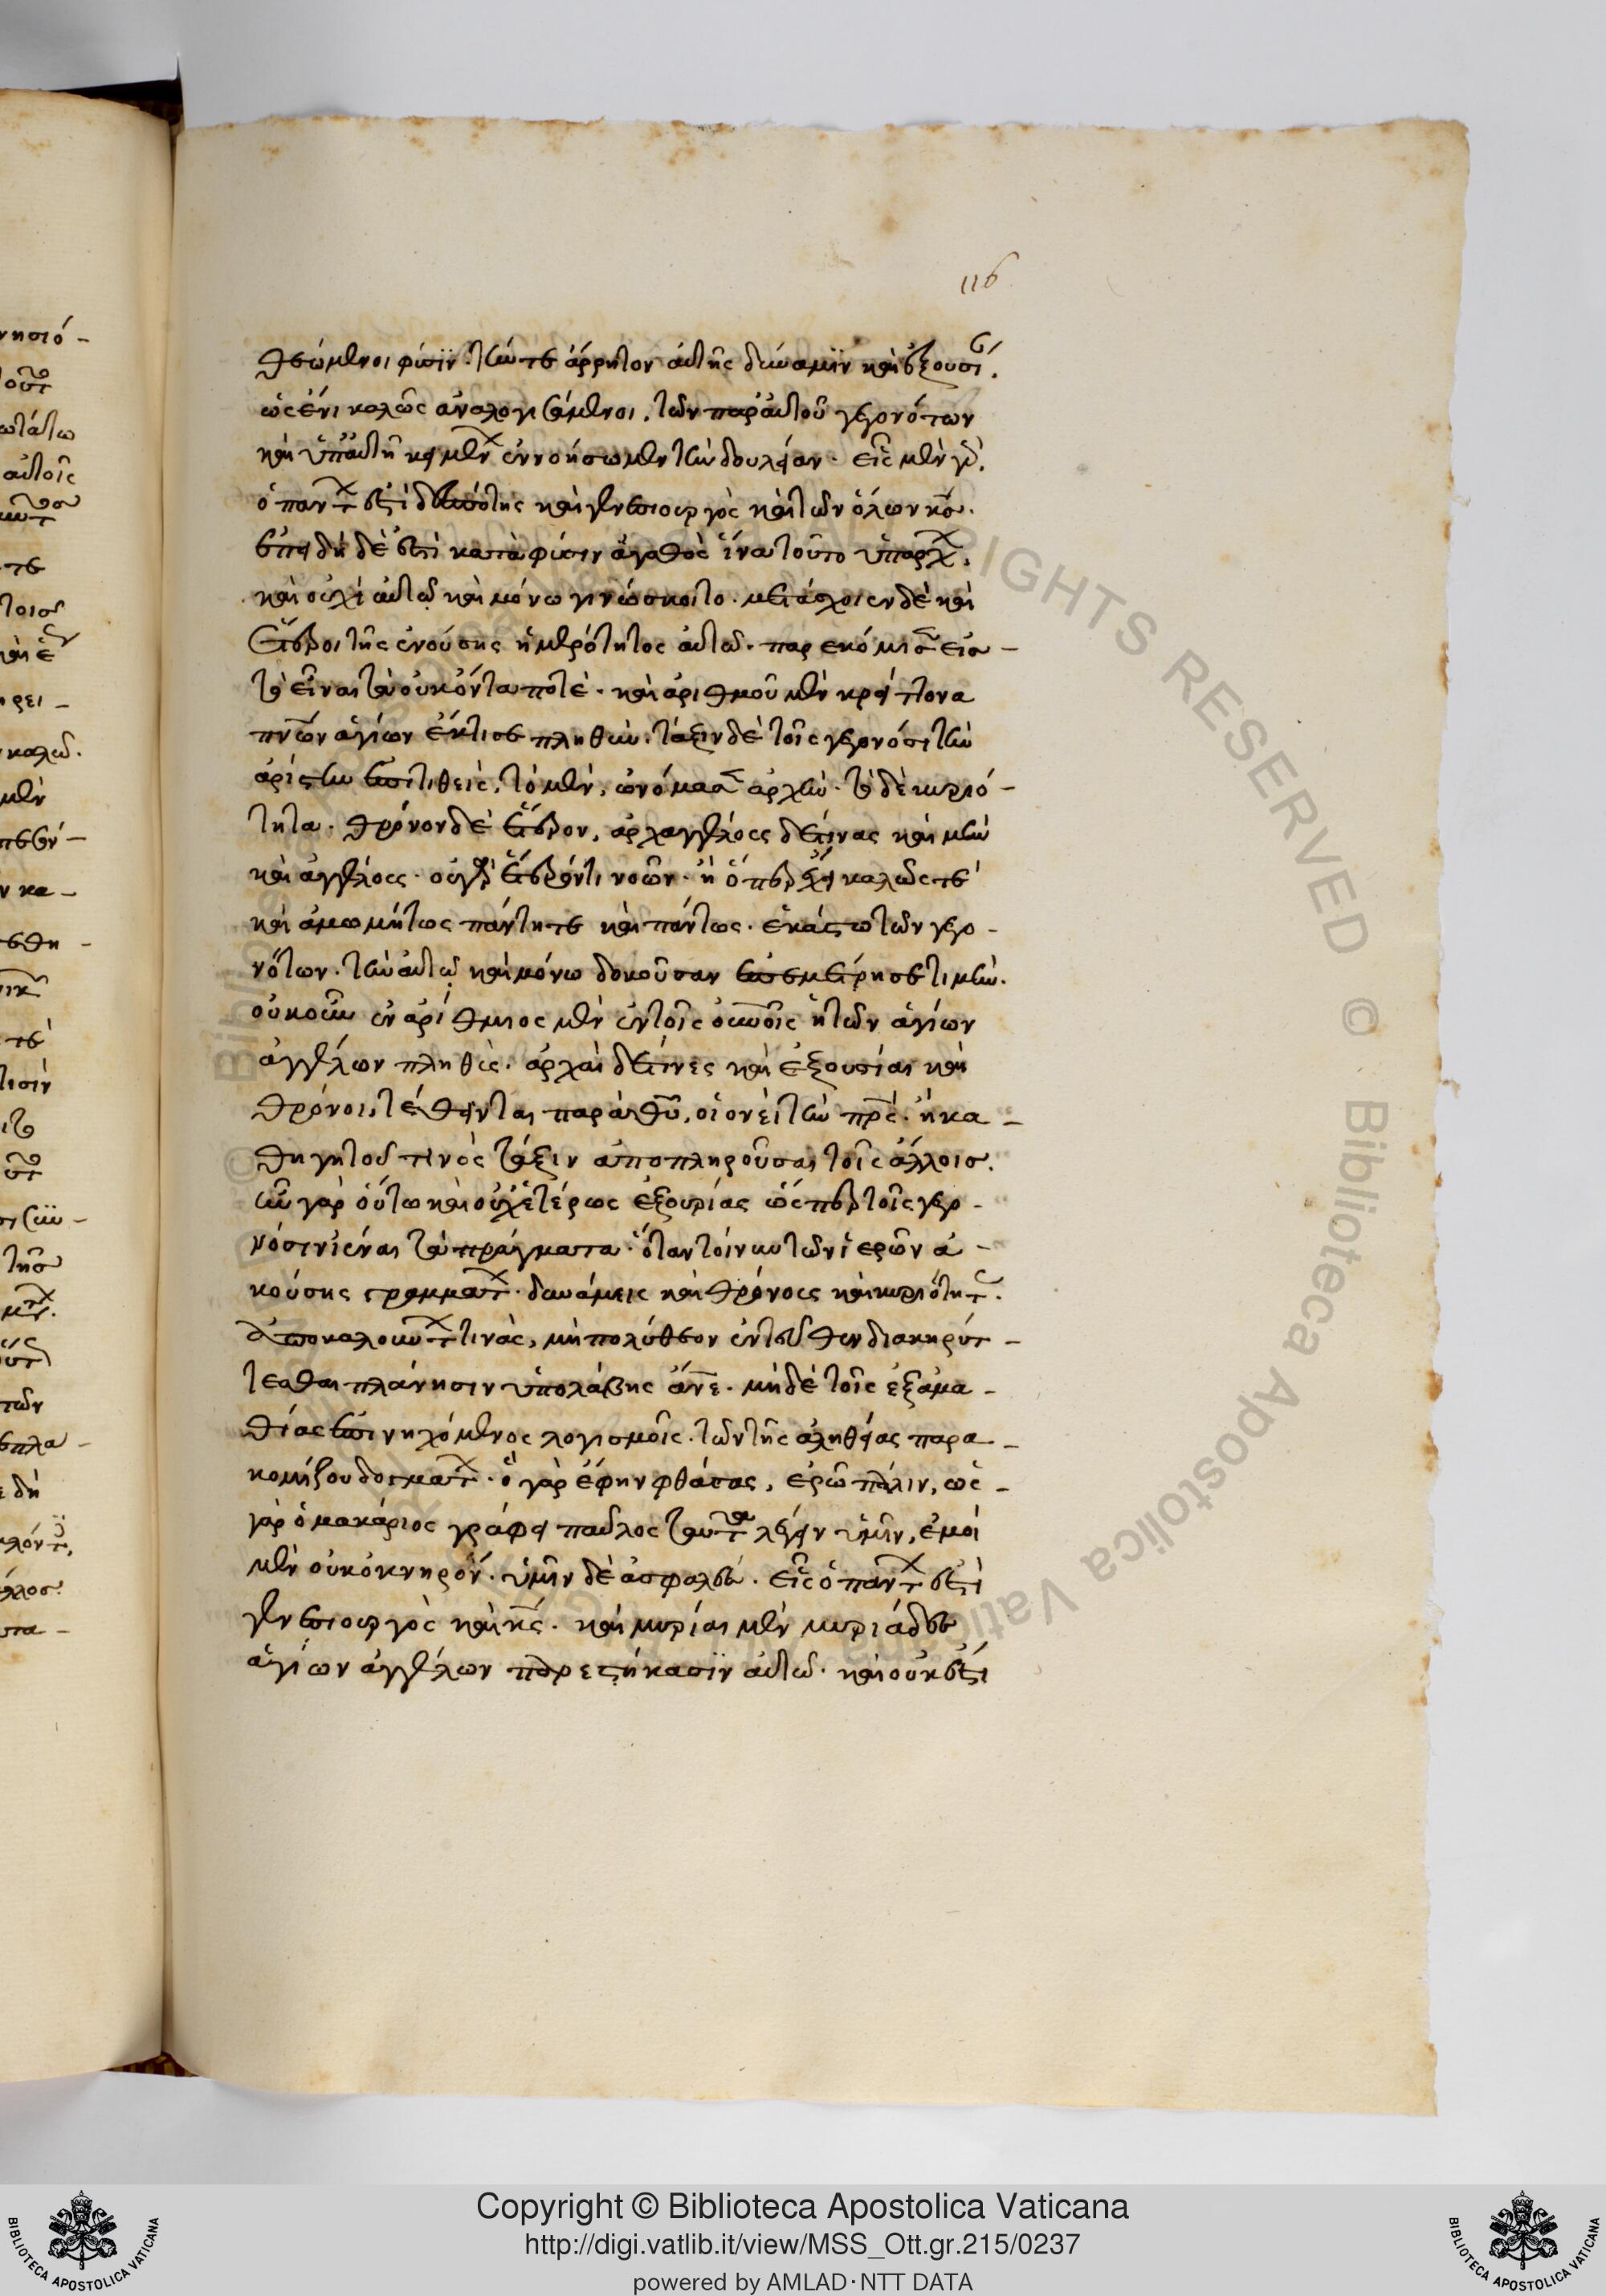 116
θεώμενοι φύσϊν. τήν τε ἄρρητον αὐτῆς δύναμϊν καὶ ἐξουσί.
ὡς ἔνι καλῶς ἀναλογισάμενοι, τῶν παρ' αὐτοῦ γεγονότων
καὶ ὑπ' αὐτῆ κειμεν ἐννοήσωμεν τὴν δουλείαν. εἷς μὲν γὰρ
ὁ παντ ἐστὶ δεσπότης καὶ γενεσιουργὸς καὶ τῶν ὅλων κς.
ἐπειδὴ δέ ἐστι κατὰ φύσιν ἀγαθὸς ἵνα τοῦτο ὑπαρχ,
καὶ οὐχὶ αὐτῷ καὶ μόνω γινώσκοιτο. μετάσχοιεν δὲ καὶ
ἕτεροι τῆς ἐνούσης ἡμερότητος αὐτῶ. παρεκόμισεν εἰσ -
τὸ εἶναι τὰ οὐκ ὄντα ποτέ. καὶ ἀριθμοῦ μὲν κρείττονα
πνων ἁγίων ἔκτισε πληθύν. τάξιν δὲ τοῖς γεγονόσι τὴν
ἀρίστην ἐπιτιθεὶς, τὸ μὲν, ὠνόμασεν ἀρχήν. τὸ δὲ κυριό -
τητα. θρόνον δὲ ἕτερον, ἀρχαγγέλους δέ τινας καὶ μὴν
καὶ ἀγγέλους. οὐχ ἕτερόν τι νοῶν. ἢ ὅπερ ἔχει καλῶς τέ
καὶ ἀμωμήτως πάντητε καὶ πάντως. ἑκάστω τῶν γεγο -
νότων. τὴν αὐτῷ καὶ μόνω δοκοῦσαν ἐπεμέτρησε τιμήν.
οὐκοῦν ἐναρίθμιος μὲν ἐν τοῖς οὐνοις ἡ τῶν ἁγίων
ἀγγέλων πληθύς. ἀρχαὶ δέ τινες καὶ ἐξουσίαι καὶ
θρόνοι, τέθεινται παρὰ θυ, οἱονεὶ τὴν πρς. ἢ κα -
θηγητοῦ τινὸς τάξιν ἀποπληροῦσαι τοῖς ἄλλοισ.
ἦν γὰρ οὕτω καὶ οὐχ ἑτέρως ἐξουρίας ὥσπερ τοῖς γεγο -
νόσιν ἰέναι τὰ πράγματα. ὅταν τοίνυν τῶν ἱερῶν ἀ -
κούσης γραμματ. δυνάμεις καὶ θρόνους καὶ κυριότητ.
ἀποκαλουντ τινὰς, μὴ πολύθεον ἐντεῦθεν διακηρύτ -
τεσθαι πλάνησιν ὑπολάβης ἄνε. μηδὲ τοῖς ἐξ ἀμα -
θίας ἐπινηχόμενος λογισμοῖς. τῶν τῆς ἀληθείας παρα -
κομίζου δογματ. ὃ γὰρ ἔφην φθάσας, ἐρῶ πάλιν, ὡς -
γὰρ ὁ μακάριος γράφει παῦλος ταυτ λέγειν ὑμῖν, ἐμοὶ
μὲν οὐκ ὀκνηρόν. ὑμῖν δὲ ἀσφαλὲς. εἷς ὁ παντ ἐστὶ
γενεσιουργὸς καὶ κς. καὶ μυρίαι μὲν μυριάδες
ἁγίων ἀγγέλων παρεστήκασϊν αὐτῶ. καὶ οὐκ ἐστὶ
Copyright © Biblioteca Apostolica Vaticana
http://digi.vatlib.it/view/MSS_Ott.gr.215/0237
powered by AMLAD·NTT DATA